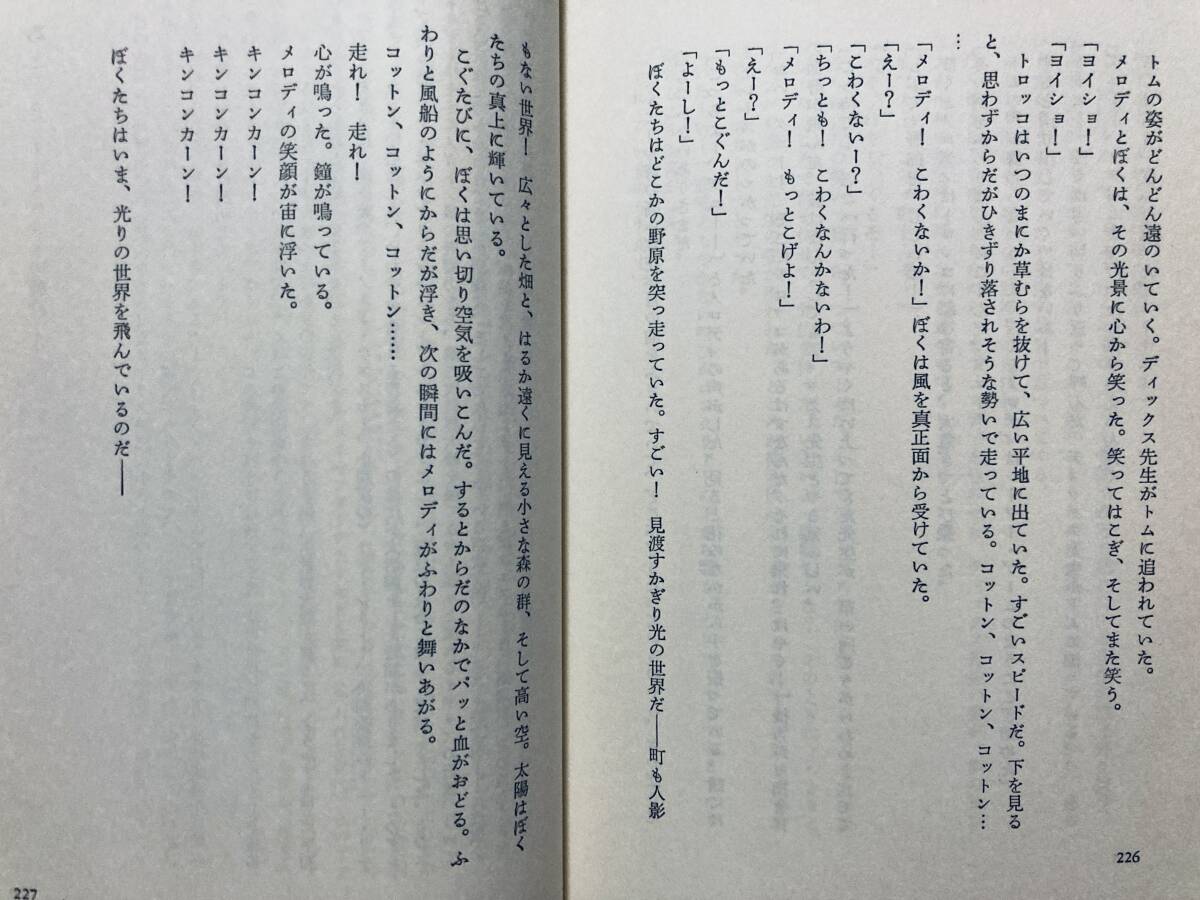 トムの姿がどんどん遠のいていく。ディックス先生がトムに追われていた。
メロディとぼくは、その光景に心から笑った。笑ってはこぎ、そしてまた笑う。
「ヨイショ！」
「ヨイショ！」
トロッコはいつのまにか草むらを抜けて、広い平地に出ていた。すごいスピードだ。下を見る
と、思わずからだがひきずり落されそうな勢いで走っている。コットン、コットン、コットン…
…
「メロディ！　こわくないか！」ぼくは風を真正面から受けていた。
「えー？」
「こわくないー？」
「ちっとも！　こわくなんかないわ！」
「メロディ！　もっとこげよ！」
「えー？」
「もっとこぐんだ！」
「よーし！」
ぼくたちはどこかの野原を突っ走っていた。すごい！　見渡すかぎり光の世界だ――町も人影
226
もない世界！　広々とした畑と、はるか遠くに見える小さな森の群、そして高い空。太陽はぼく
たちの真上に輝いている。
こぐたびに、ぼくは思い切り空気を吸いこんだ。するとからだのなかでパッと血がおどる。ふ
わりと風船のようにからだが浮き、次の瞬間にはメロディがふわりと舞いあがる。
コットン、コットン、コットン……
走れ！　走れ！
心が鳴った。鐘が鳴っている。
メロディの笑顔が宙に浮いた。
キンコンカーン！
キンコンカーン！
キンコンカーン！
ぼくたちはいま、光りの世界を飛んでいるのだ――
227